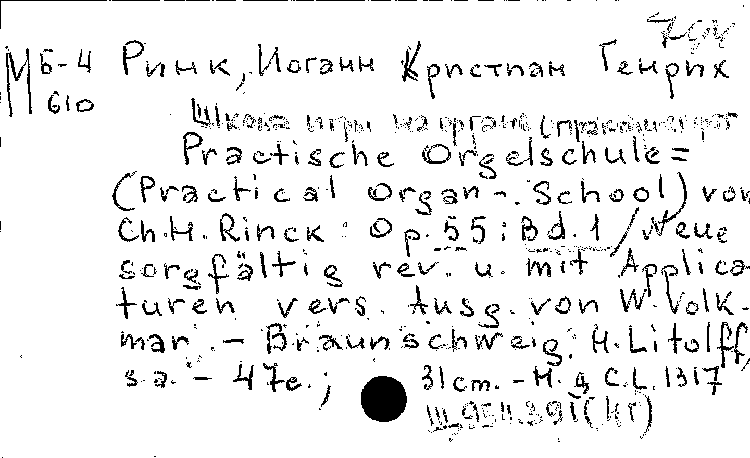 М Б-4 Ринк, Иоганн Кристиан Генрих
610
Школа игры на органе
Practische Orgelschule =
(Practical Organ-School) von
Ch. H. Rinck : Op. 55 : Bd. 1 / Neue
sorgfältig rev. u. mit Applica-
turen vers. Ausg. von W. Volk-
mar. - Braunschweig : H. Litolff,
s.a. - 47 c. ; 31 cm. - Н. д. C. L. 1317